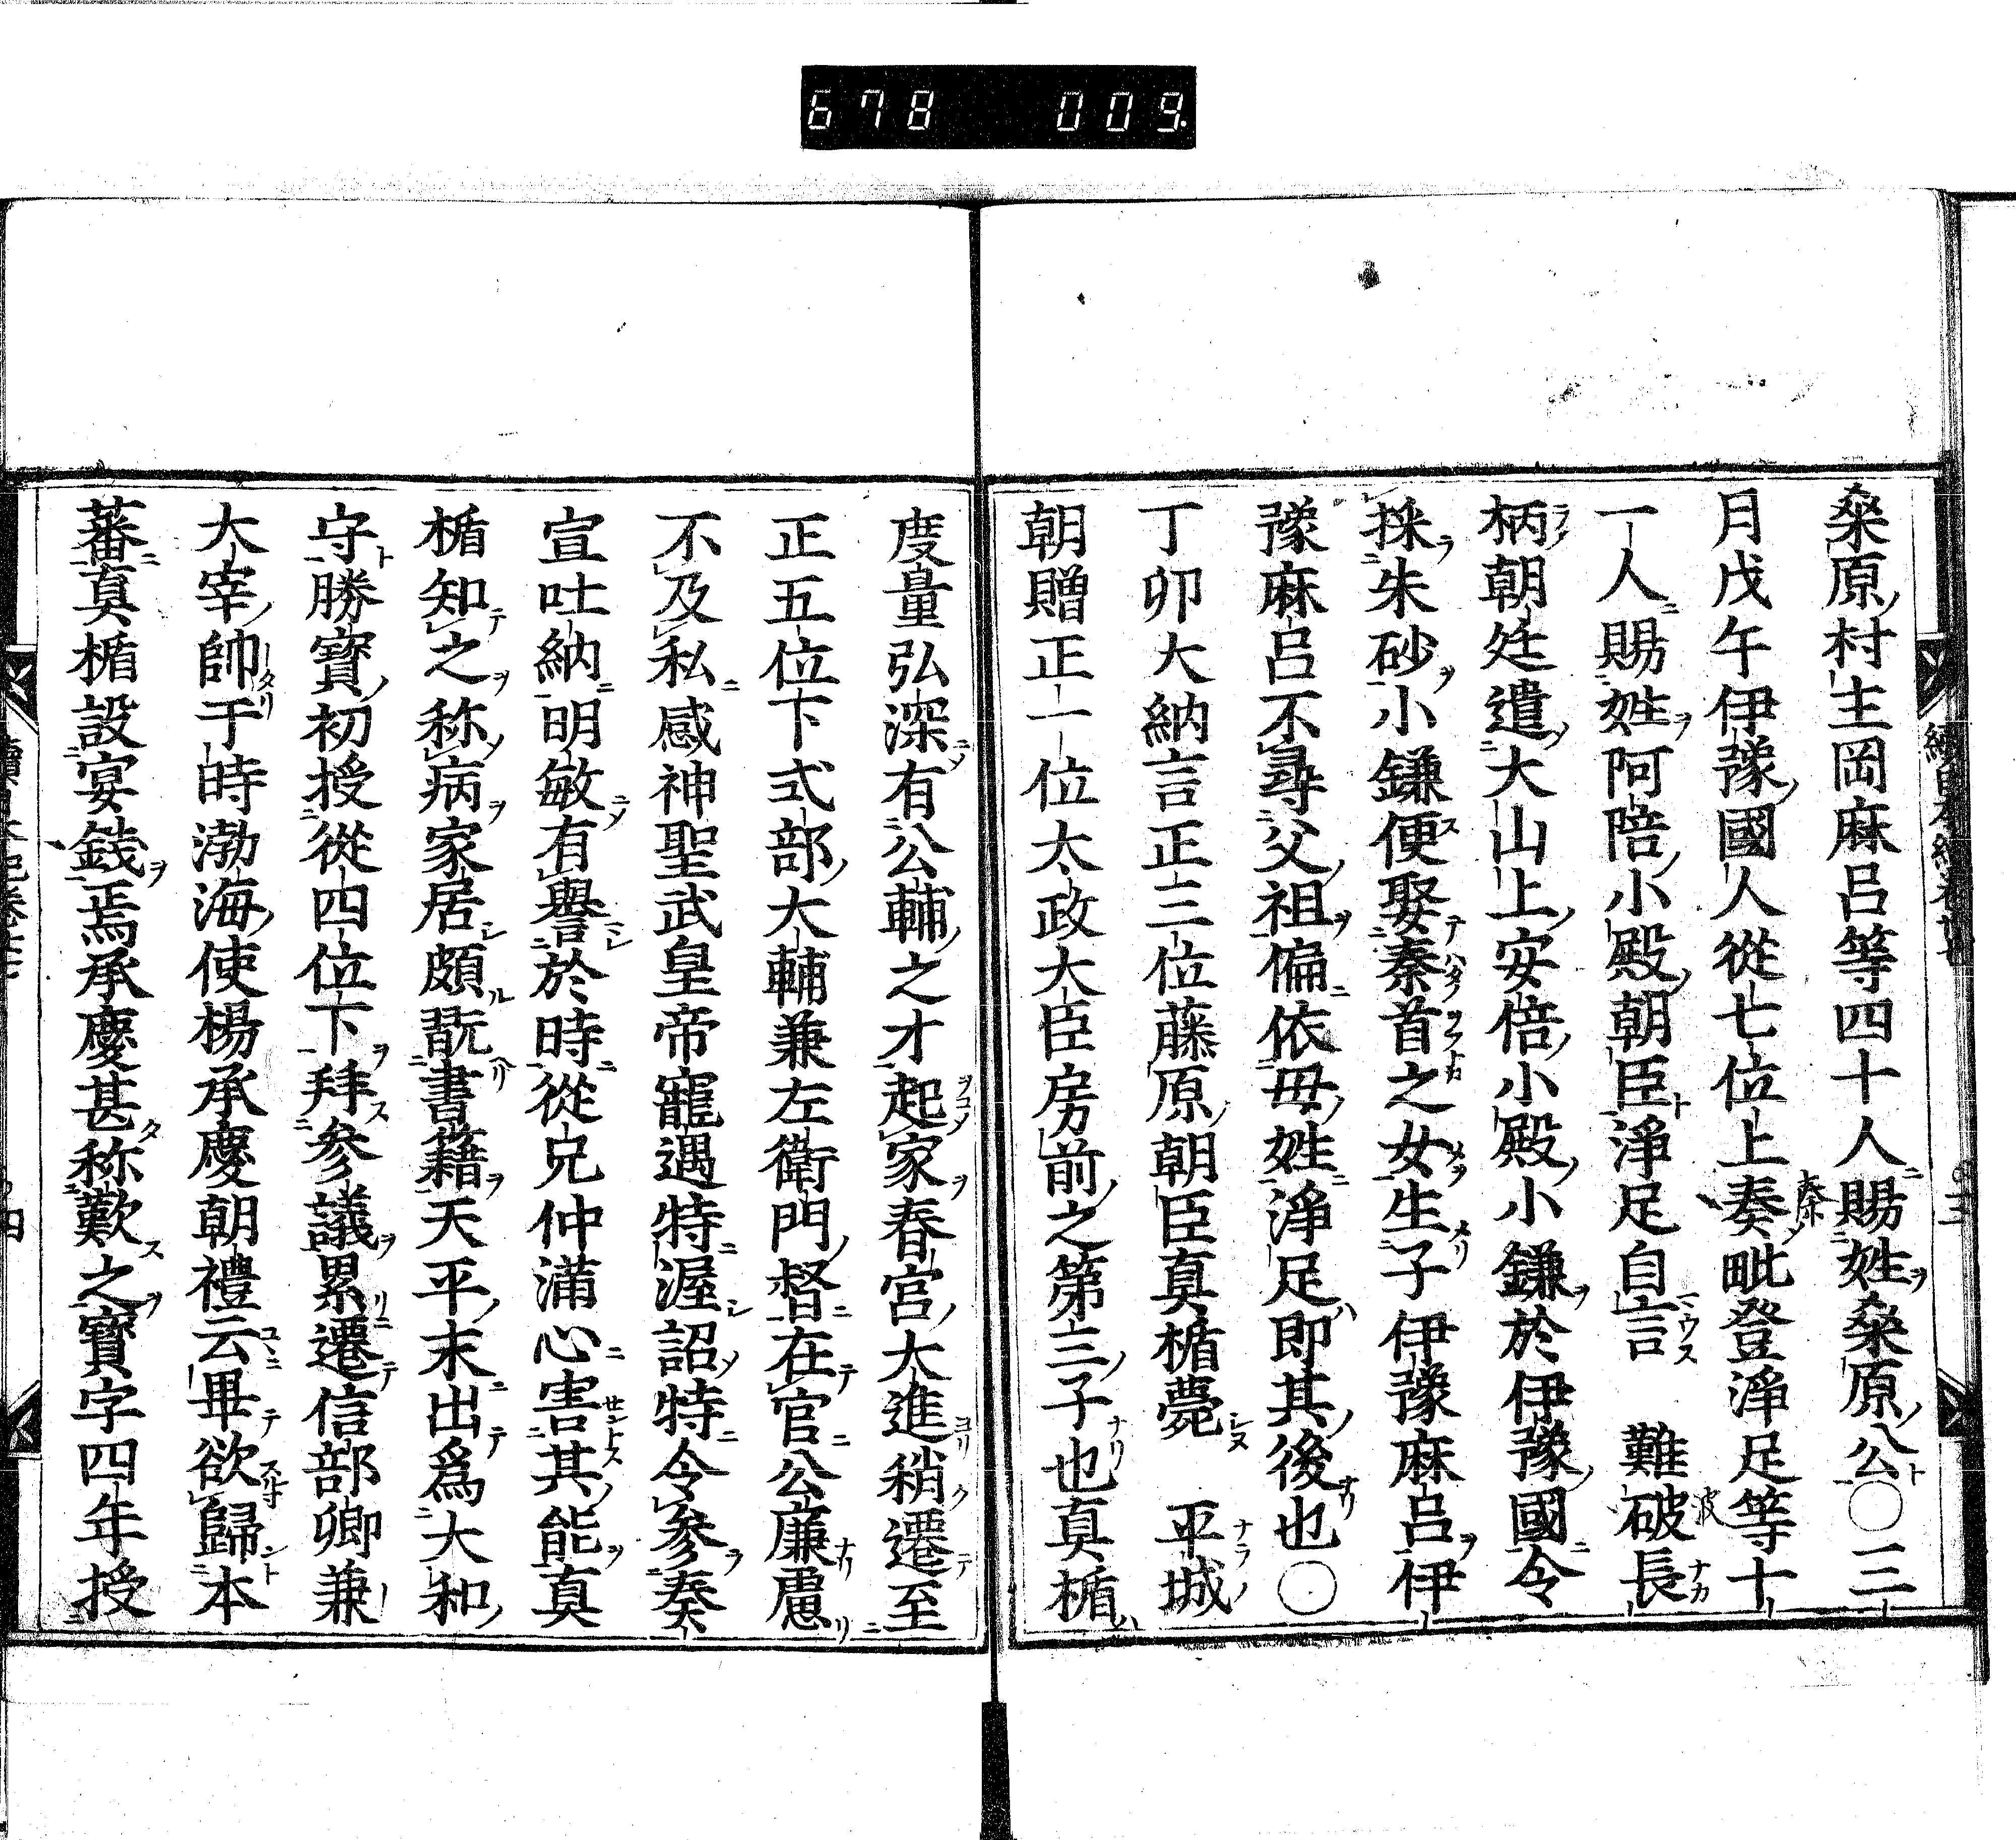 678 009.
桑原村主岡麻呂等四十人賜姓桑原公〇三
月戊午伊豫國人從七位上秦毗登淨足等十
一人賜姓阿陪小殿朝臣淨足自言 難破長
柄朝廷遣大山上安倍小殿小鎌於伊豫國令
採朱砂小鎌便娶秦首之女生子伊豫麻呂伊
豫麻呂不尋父祖偏依母姓淨足即其後也〇
丁卯大納言正三位藤原朝臣真楯薨 平城
朝贈正一位太政大臣房前之第三子也真楯
度量弘深有公輔之才起家春宮大進稍遷至
正五位下式部大輔兼左衛門督在官公廉慮
不及私感神聖武皇帝寵遇特渥詔特令參奏
宣吐納明敏有譽於時從兄仲滿心害其能真
楯知之称病家居頗翫書籍天平末出爲大和
守勝寶初授從四位下拜參議累遷信部卿兼
大宰帥于時渤海使楊承慶朝禮云畢欲歸本
蕃真楯設宴錢焉承慶甚称歎之寶字四年授